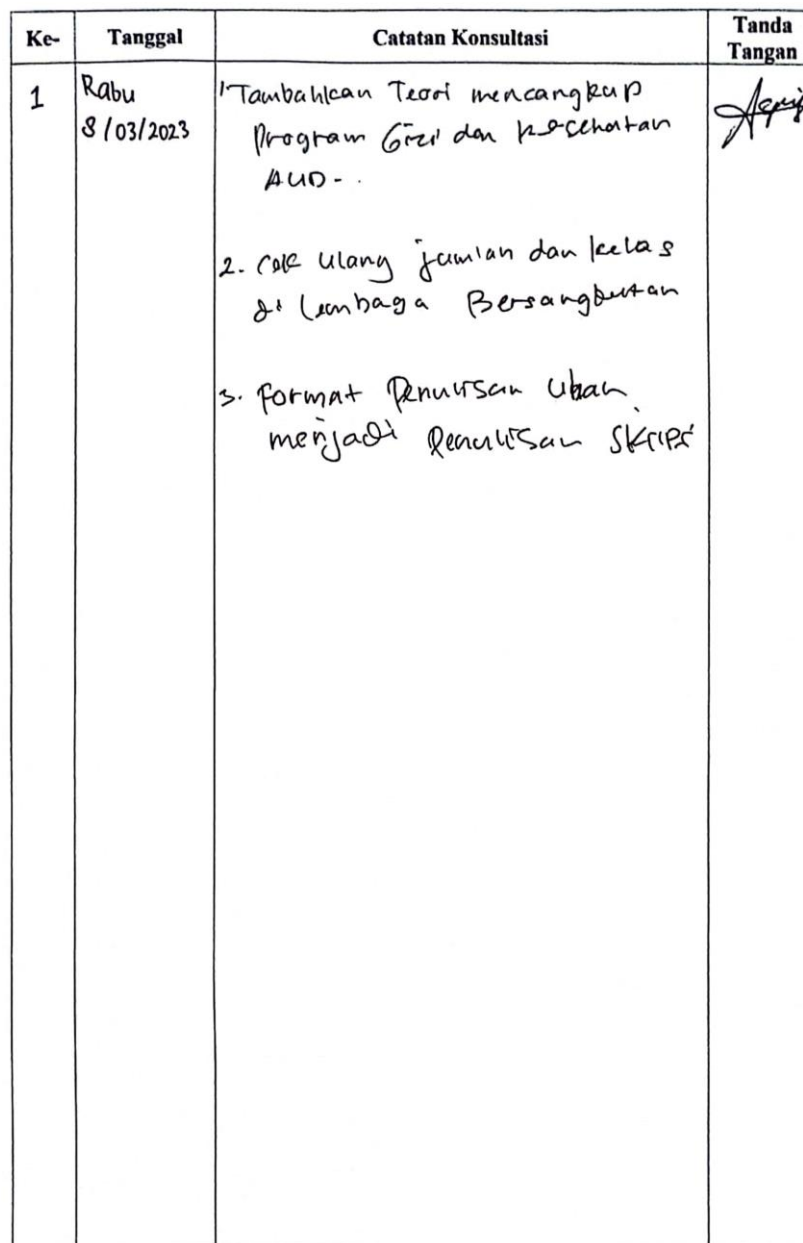 Ke- Tanggal Catatan Konsultasi Tanda Tangan
1 Rabu 1. Tambahkan Teori mencangkup
8/03/2023 Program Gizi dan kesehatan
AUD-.
2. Cek Ulang jumlah dan kelas
di lembaga Bersangkutan
3. Format Penulisan Ubah
menjadi Penulisan Skripsi